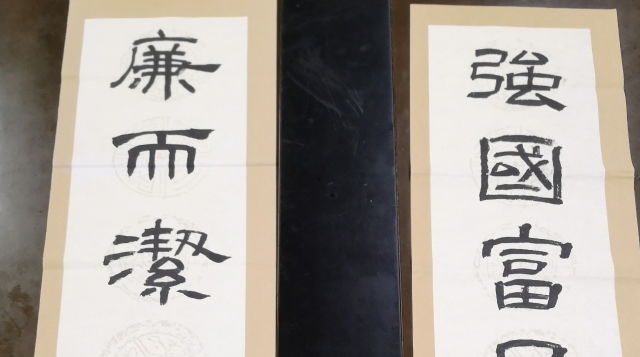 強國富
廉而潔